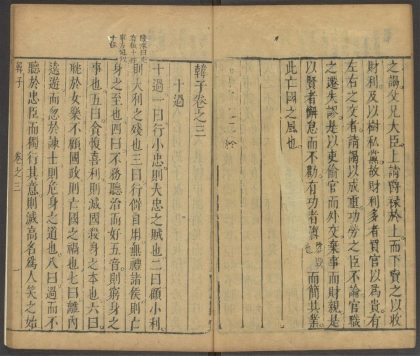 之謁父兄大臣上請爵祿於上而下賣之以收
財利及以樹私黨故財利多者買官以為貴有
左右之交者請謁以成重功勞之臣不論官職
之遷失謬是以吏偷官而外交棄事而財親是
以賢者懈怠而不勸有功者隳而簡其業
此亡國之風也
韓子卷之三
十過
十過一曰行小忠則大忠之賊也二曰顧小利
則大利之殘也三曰行僻自用無禮諸侯則亡
身之至也四曰不務聽治而好五音則窮身之
事也五曰貪愎喜利則滅國殺身之本也六曰
耽於女樂不顧國政則亡國之禍也七曰離內
遠遊而忽於諫士則危身之道也八曰過而不
聽於忠臣而獨行其意則滅高名為人笑之始
韓子 卷之三 一